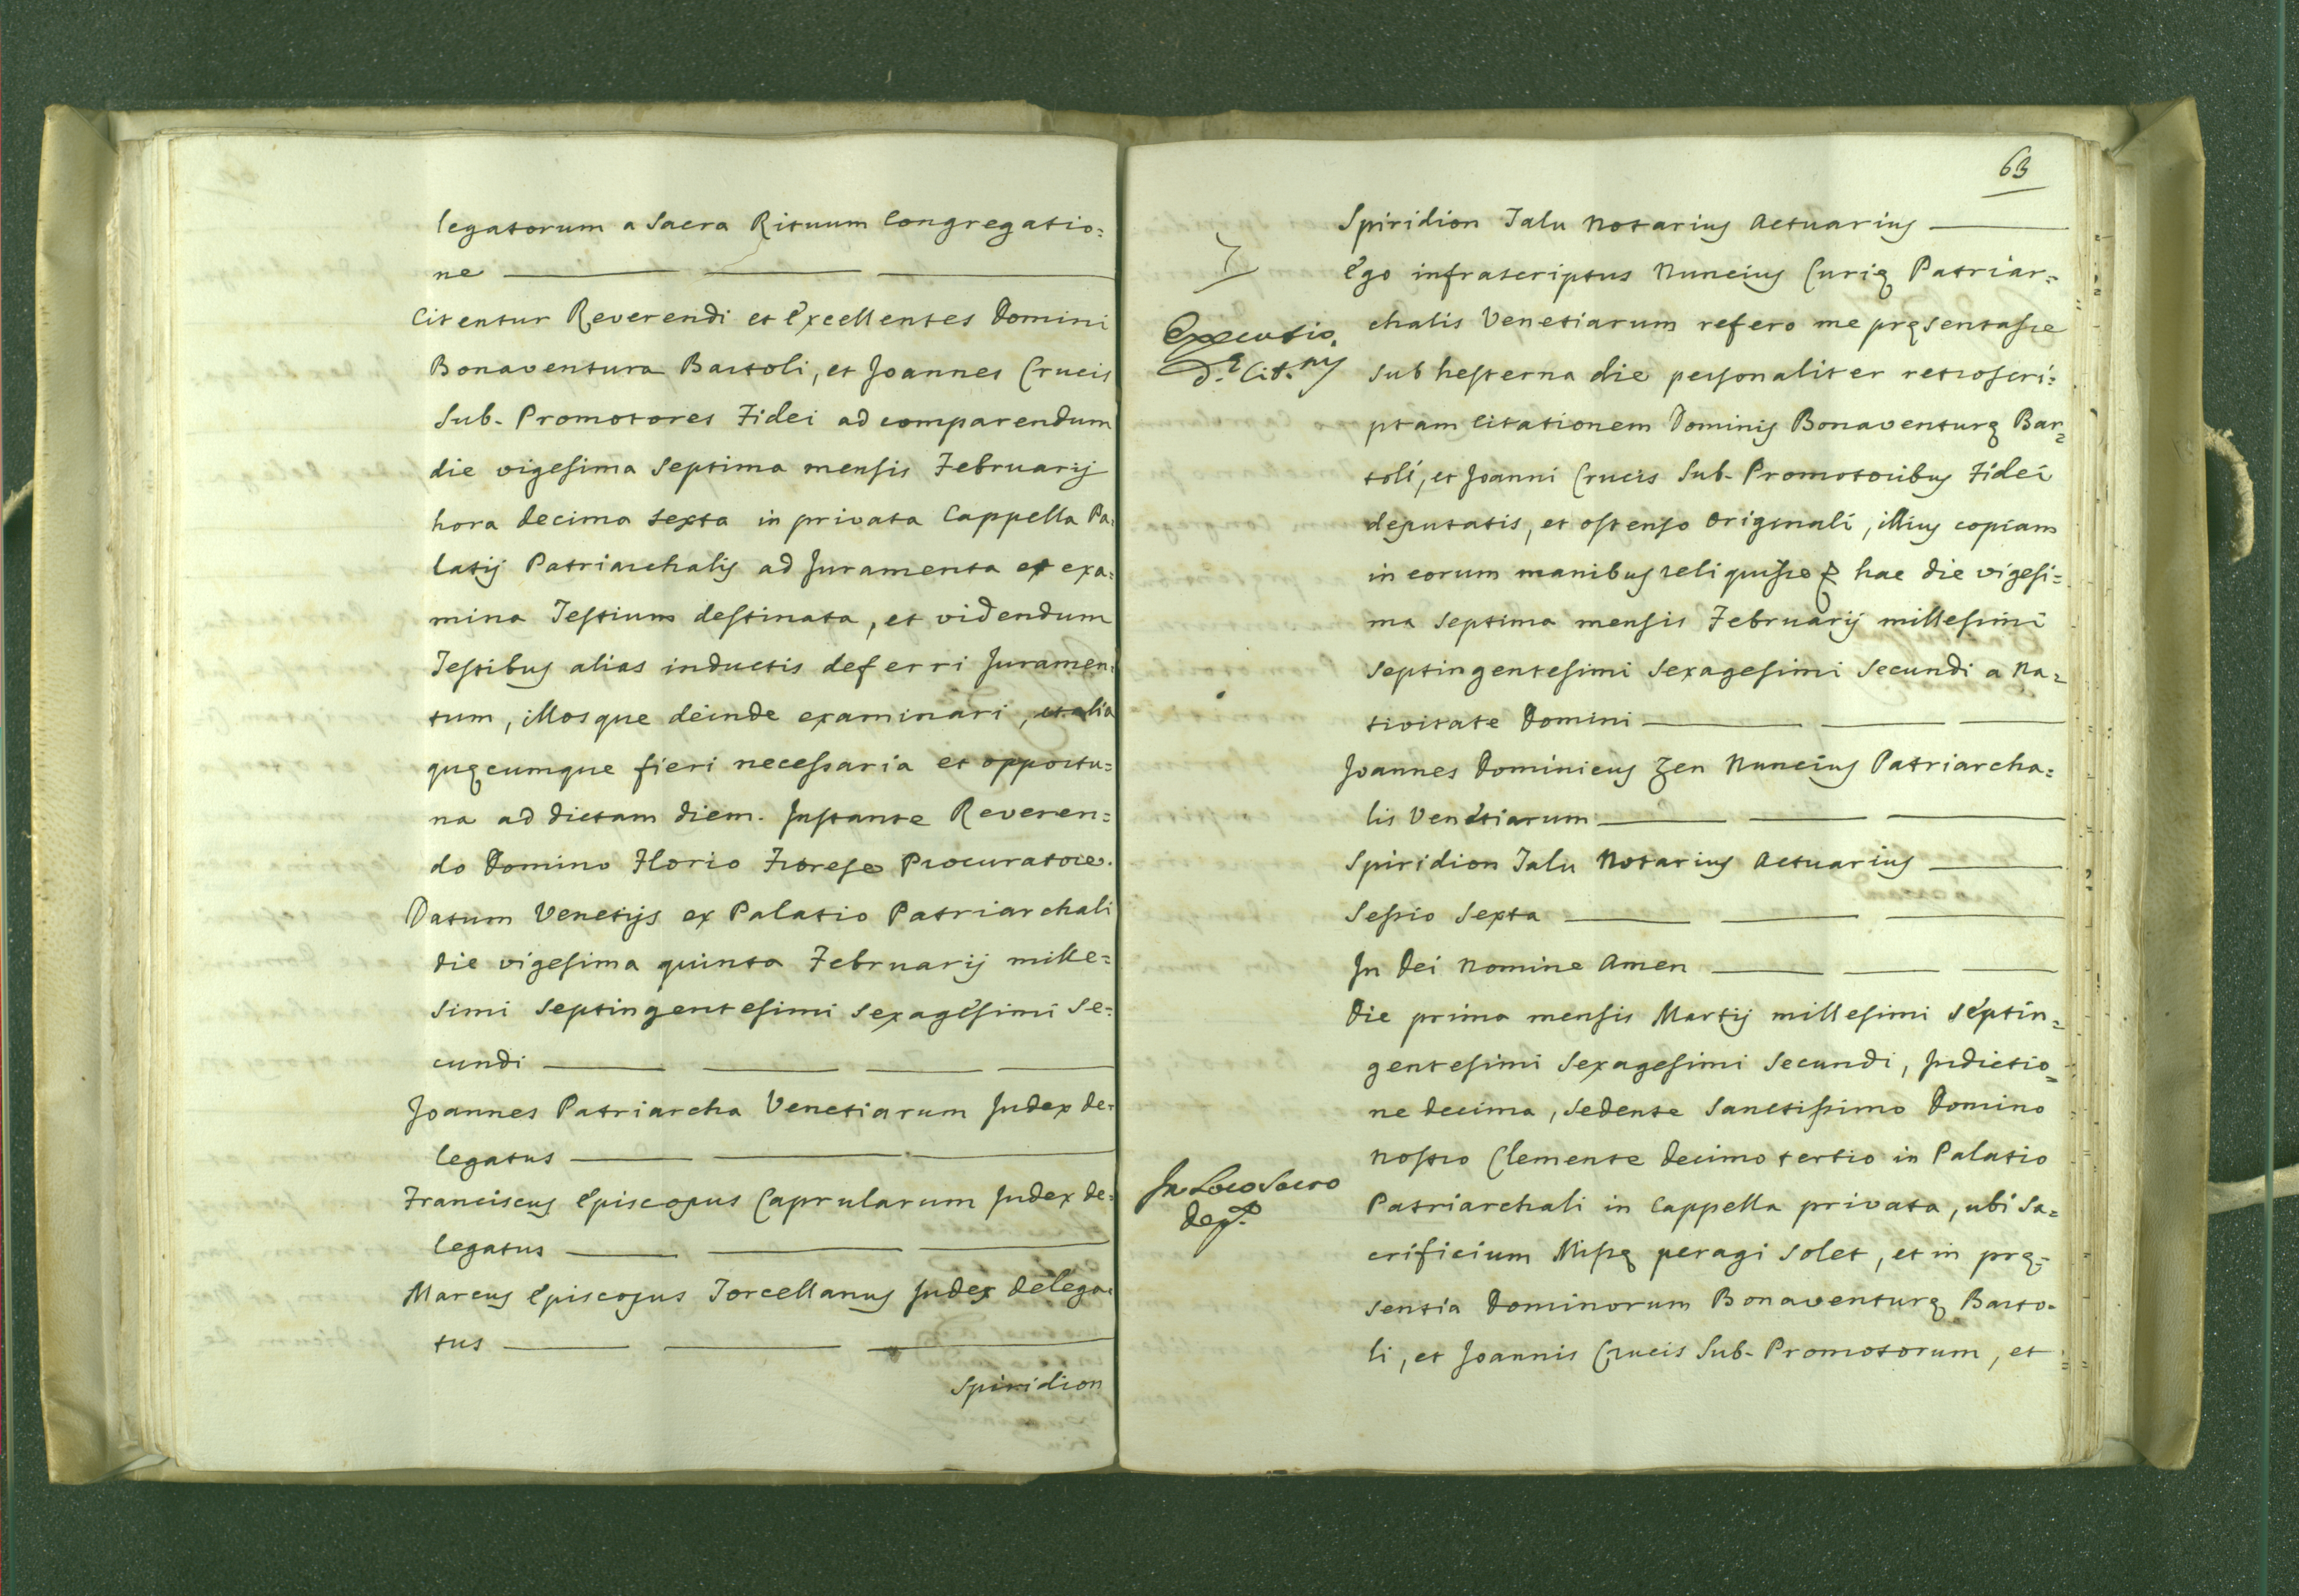 legatorum a Sacra Rituum Congregatio=
ne
Citentur Reverendi et Excellentes Domini
Bonaventura Bartoli, et Joannes Crucis
Sub-Promotores Fidei ad comparendum
die vigesima septima mensis Februarij
hora decima sexta in privata Cappella Pa=
latij Patriarchalis ad Juramenta et exa=
mina Testium destinata, et videndum
Testibus alias inductis deferri Juramen=
tum, illosque deinde examinari, et alia
quęcumque fieri necessaria et opportu=
na ad dictam diem. Instante Reveren=
do Domino Florio Fiorese Procuratore.
Datum Venetijs ex Palatio Patriarchali
die vigesima quinta Februarij mille=
simi septingentesimi sexagesimi se=
cundi
Joannes Patriarcha Venetiarum Judex de=
legatus
Franciscus Episcopus Caprularum Judex de=
legatus
Marcus Episcopus Torcellanus Judex delega=
tus
Spiridion
63
Spiridion Talu Notarius Actuarius
Ego infrascriptus Nuncius Curię Patriar=
chalis Venetiarum refero me pręsentasse
sub hesterna die personaliter retroscri=
ptam citationem Dominis Bonaventurę Bar=
toli, et Joanni Crucis Sub-Promotoribus Fidei
deputatis, et ostenso originali, illius copiam
in eorum manibus reliquisse hac die vigesi=
ma septima mensis Februarij millesimi
septingentesimi sexagesimi secundi a Na=
tivitate Domini
Joannes Dominicus Zen Nuncius Patriarcha=
lis Venetiarum
Spiridion Talu Notarius Actuarius
Sessio Sexta
In Dei Nomine Amen
Die prima mensis Martij millesimi septin=
gentesimi sexagesimi secundi, Indictio=
ne decima, sedente Sanctissimo Domino
Nostro Clemente decimo tertio in Palatio
Patriarchali in Cappella privata, ubi sa=
crificium Missę peragi solet, et in prę=
sentia Dominorum Bonaventurę Barto=
li, et Joannis Crucis Sub-Promotorum, et
Executio
d.ę Cit.nis
In Loco Sacro
dep.o